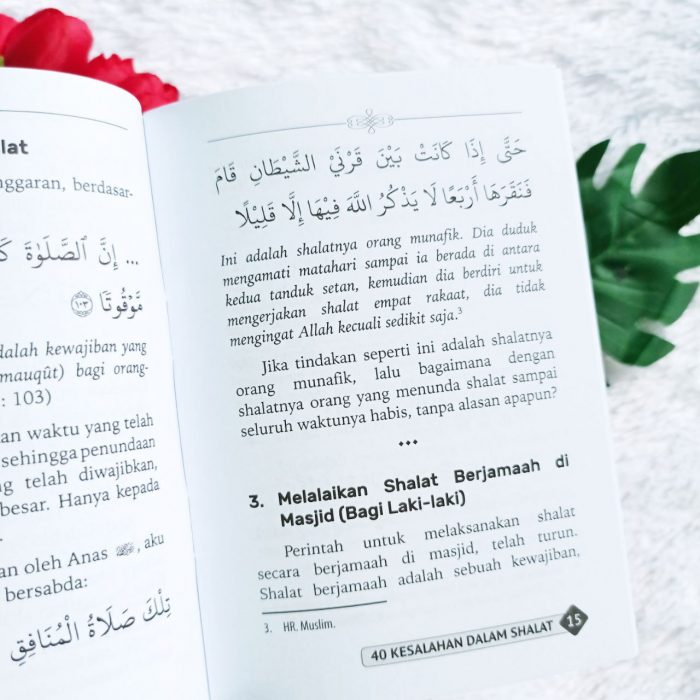 lat
nggaran, berdasar-
... إِنَّ ٱلصَّلَوٰةَ كَ
مَّوْقُوتًا ١٠٣
dalah kewajiban yang
mauqût) bagi orang-
: 103)
an waktu yang telah
sehingga penundaan
g telah diwajibkan,
besar. Hanya kepada
an oleh Anas ﷺ, aku
bersabda:
تِلْكَ صَلَاةُ الْمُنَافِقِ
حَتَّى إِذَا كَانَتْ بَيْنَ قَرْنَيْ الشَّيْطَانِ قَامَ
فَنَقَرَهَا أَرْبَعًا لَا يَذْكُرُ اللَّهَ فِيْهَا إِلَّا قَلِيْلًا
Ini adalah shalatnya orang munafik. Dia duduk
mengamati matahari sampai ia berada di antara
kedua tanduk setan, kemudian dia berdiri untuk
mengerjakan shalat empat rakaat, dia tidak
mengingat Allah kecuali sedikit saja.³
Jika tindakan seperti ini adalah shalatnya
orang munafik, lalu bagaimana dengan
shalatnya orang yang menunda shalat sampai
seluruh waktunya habis, tanpa alasan apapun?
3. Melalaikan Shalat Berjamaah di
Masjid (Bagi Laki-laki)
Perintah untuk melaksanakan shalat
secara berjamaah di masjid, telah turun.
Shalat berjamaah adalah sebuah kewajiban,
3. HR. Muslim.
40 KESALAHAN DALAM SHALAT 15